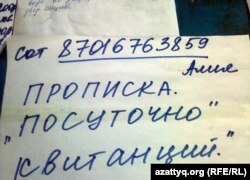 сот 87016763859
Алия
ПРОПИСКА.
"ПОСУТОЧНО"
КВИТАНЦИЙ."
azattyq.org (RFE/RL)